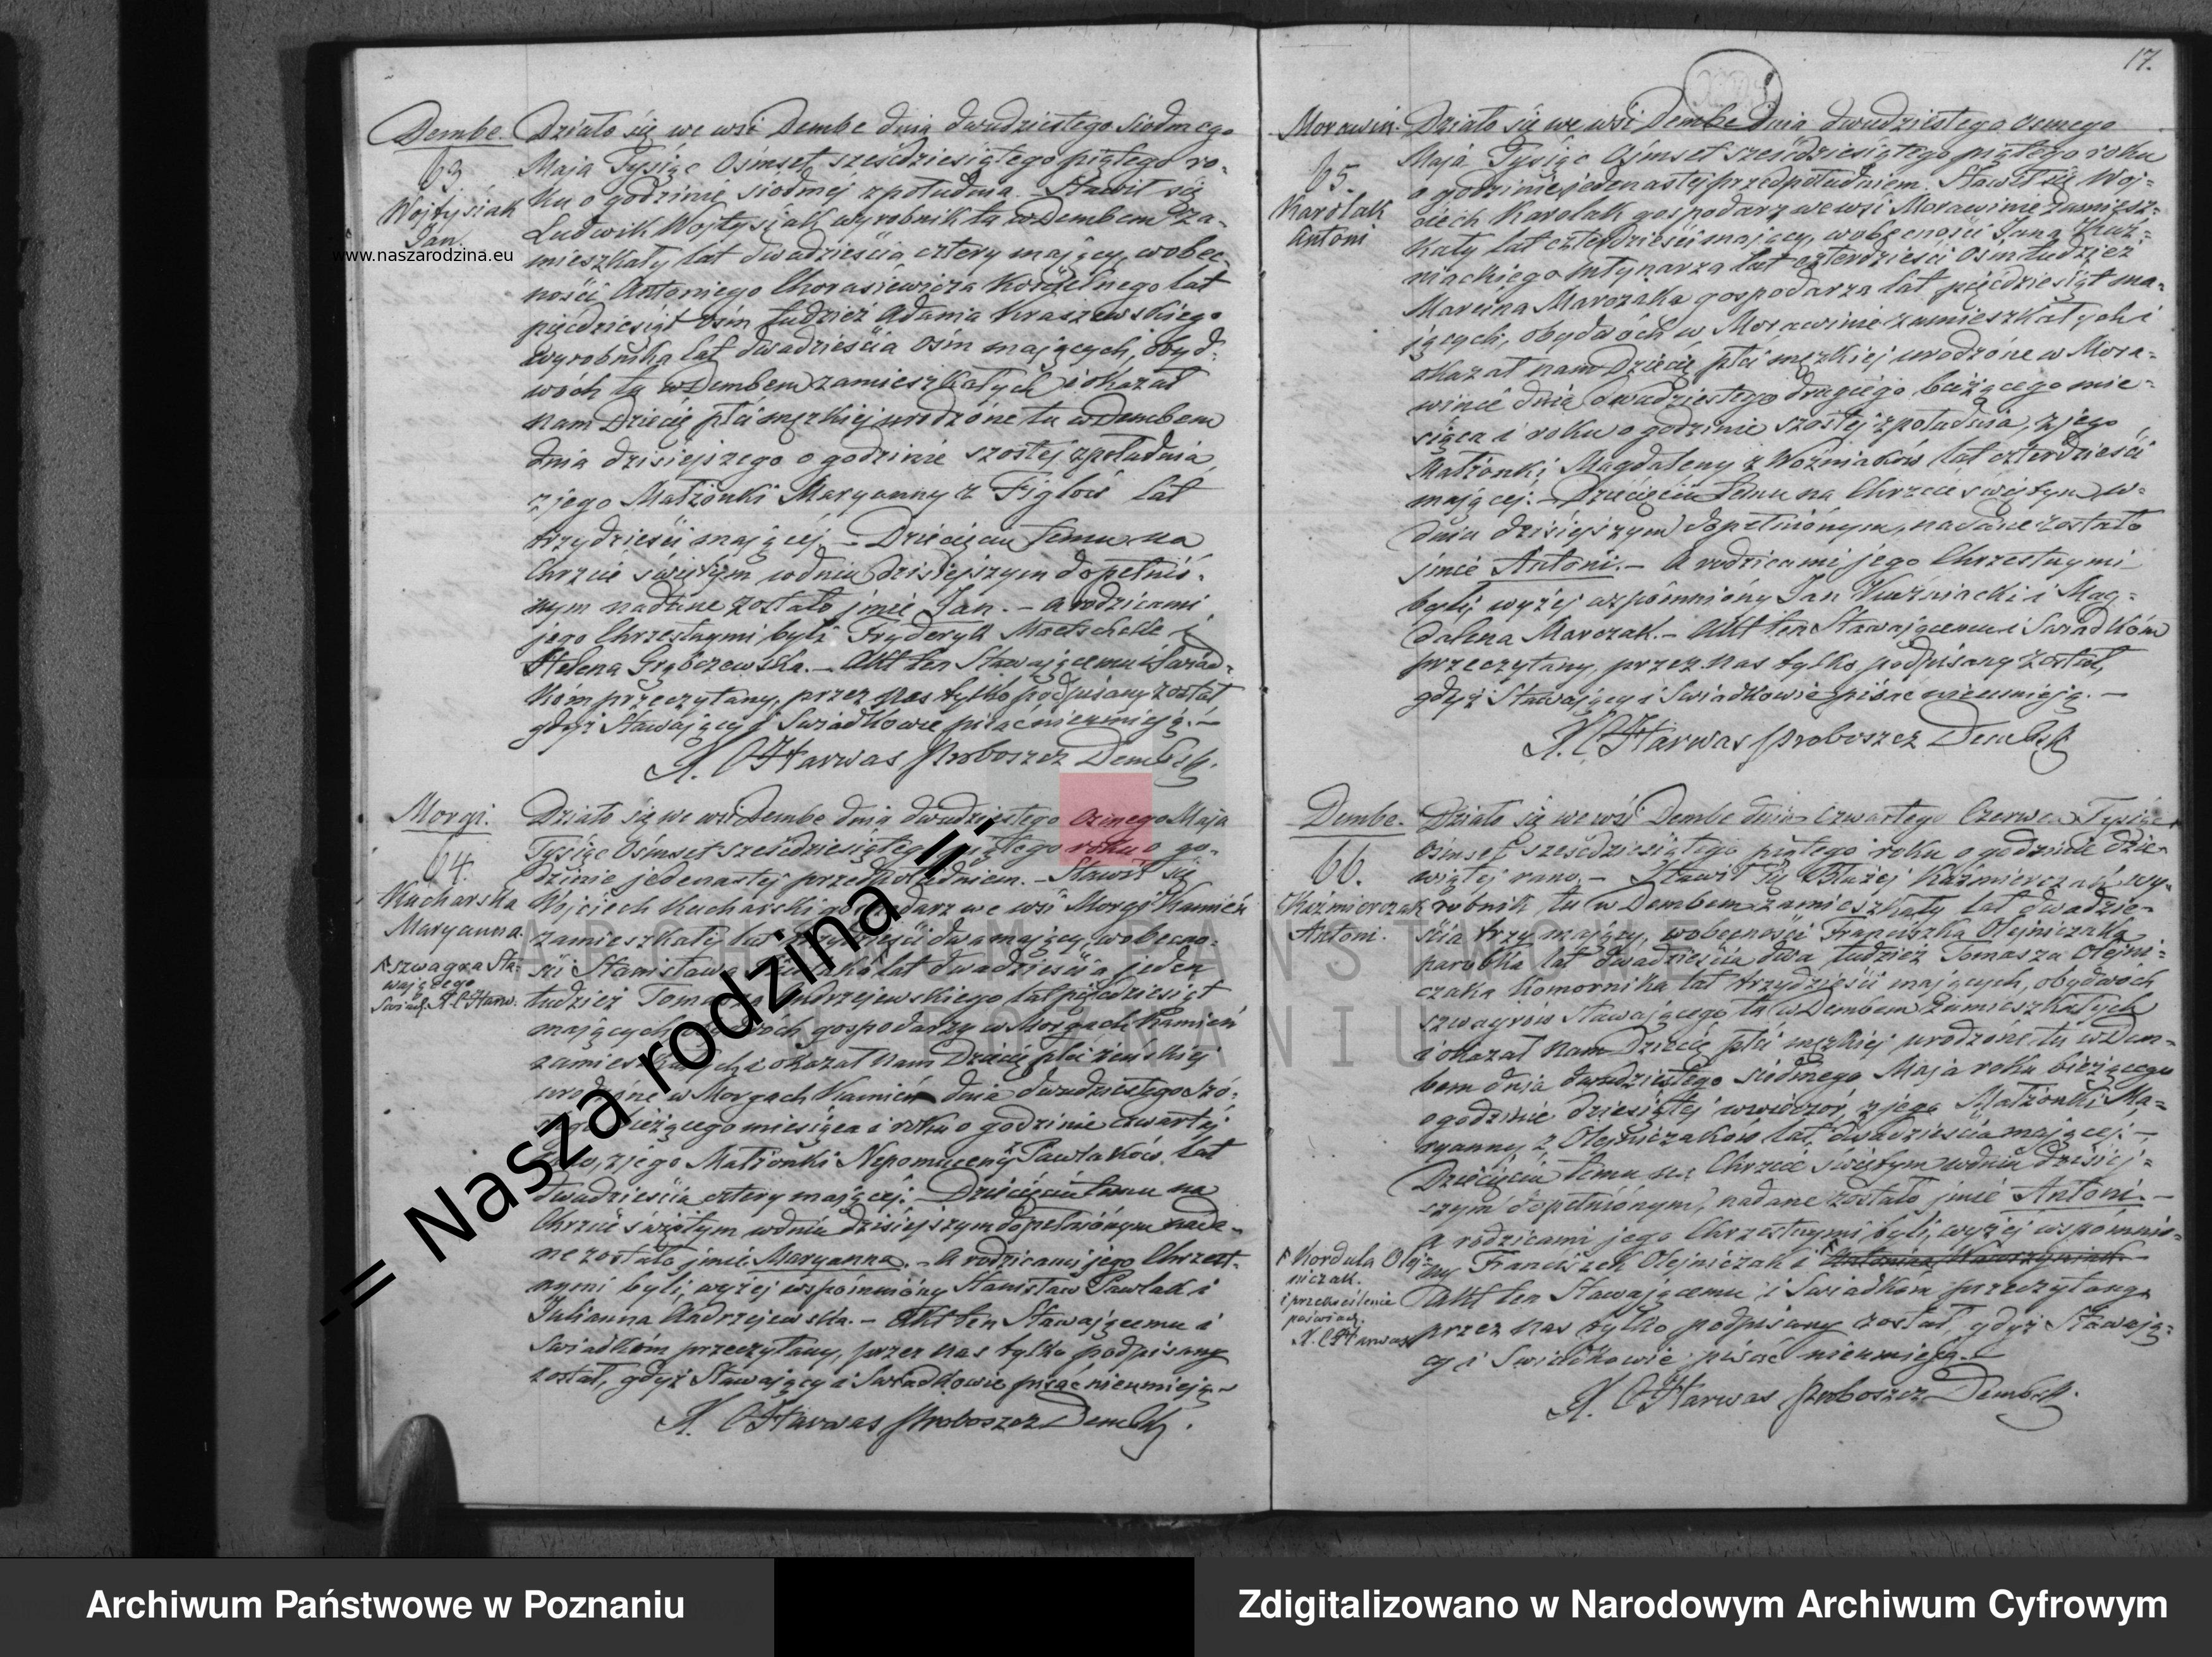 17.
Dembe.
63
Wojtysiak
Jan.
www.naszarodzina.eu
Działo się we wsi Dembe dnia dwudziestego siódmego
Maja Tysiąc Ośmset sześćdziesiątego piątego ro-
ku o godzinie siódmej z południa. Stawił się
Ludwik Wojtysiak wyrobnik tu w Dembem za-
mieszkały lat dwadzieścia cztery mający, w obec-
ności Antoniego Chorasiewicza Kościelnego lat
pięćdziesiąt ośm tudzież Adama Kraszewskiego
wyrobnika lat dwadzieścia ośm mających, obyd-
wóch tu w Dembem zamieszkałych i okazał
nam Dziecię płci męzkiej urodzone tu w Dembem
dnia dzisiejszego o godzinie szóstej z południa
z jego Małżonki Maryanny z Figlów lat
trzydzieści mającej. – Dziecięciu temu na
Chrzcie świętym w dniu dzisiejszym dopełnio-
nym nadane zostało jmie Jan. – a rodzicami
jego Chrzestnymi byli Fryderyk Maetschelle i
Helena Grąbczewska. – Akt ten Stawającemu i Świad-
kom przeczytany, przez nas tylko podpisany został
gdyż Stawający i Świadkowie pisać nieumieją. –
X. C Harwas Proboszcz Dembsk.
Morgi.
64.
Kucharska
Maryanna.
szwagra Sta-
wającego
Świadz. X. C Harw.
Działo się we wsi Dembe dnia dwudziestego ósmego Maja
Tysiąc Ośmset sześćdziesiątego piątego roku o go-
dzinie jedenastej przed południem. – Stawił się
Wojciech Kucharski gospodarz we wsi Morgi Kamień
zamieszkały lat trzydzieści dwa mający, w obecno-
ści Stanisława Pawlaka lat dwadzieścia jeden
tudzież Tomasza Andrzejewskiego lat pięćdziesiąt
mających obydwóch gospodarzy w Morgach Kamień
zamieszkałych i okazał nam Dziecię płci żeńskiej
urodzone w Morgach Kamień dnia dwudziestego szó-
stego bieżącego miesiąca i roku o godzinie czwartej
rano, z jego Małżonki Nepomuceny z Pawlaków lat
dwadzieścia cztery mającej. – Dziecięciu temu na
Chrzcie świętym w dniu dzisiejszym dopełnionym nada-
ne zostało jmie Maryanna. – A rodzicami jego Chrzest-
nymi byli, wyżej wspomniony Stanisław Pawlak i
Julianna Andrzejewska. – Akt ten Stawającemu i
Świadkom przeczytany, przez nas tylko podpisany
został, gdyż Stawający i Świadkowie pisać nieumieją. –
X. C Harwas Proboszcz Dembsk.
Morawin.
65.
Karolak
Antoni
Działo się we wsi Dembe dnia dwudziestego ósmego
Maja Tysiąc Ośmset sześćdziesiątego piątego roku
o godzinie jedenastej przed południem. Stawił się Woj-
ciech Karolak gospodarz we wsi Morawinie zamiesz-
kały lat czterdzieści mający, w obecności Jana Kuź-
niackiego młynarza lat czterdzieści ośm tudzież
Marcina Marczaka gospodarza lat pięćdziesiąt ma-
jących, obydwóch w Morawinie zamieszkałych i
okazał nam Dziecię płci męzkiej urodzone w Mora-
winie dnia dwudziestego drugiego bieżącego mie-
siąca i roku o godzinie szóstej z południa, z jego
Małżonki Magdaleny z Woźniaków lat czterdzieści
mającej. – Dziecięciu temu na Chrzcie świętym w-
dniu dzisiejszym dopełnionym, nadane zostało
jmie Antoni. – A rodzicami jego Chrzestnymi
byli, wyżej wspomniony Jan Kuźniacki i Mag-
dalena Marczak. – Akt ten Stawającemu i Świadkom
przeczytany, przez nas tylko podpisany został,
gdyż Stawający i Świadkowie pisać nieumieją. –
X. C Harwas Proboszcz Dembsk
Dembe.
66.
Kaźmierczak
Antoni.
Kordula Olej-
niczak.
i przekreślenie
poświad.
X. C Harwas
Działo się we wsi Dembe dnia Czwartego Czerwca Tysiąc
Ośmset sześćdziesiątego piątego roku o godzinie dzie-
wiątej rano. – Stawił się Błażej Kaźmierczak wy-
robnik tu w Dembem zamieszkały lat dwadzie-
ścia trzy mający, w obecności Franciszka Olejniczaka
parobka lat dwadzieścia dwa tudzież Tomasza Olejni-
czaka Komornika lat trzydzieści mających, obydwóch
szwagrów Stawającego tu w Dembem zamieszkałych
i okazał nam Dziecię płci męzkiej urodzone tu w Dem-
bem dnia dwudziestego siódmego Maja roku bieżącego
o godzinie dziesiątej w wieczór, z jego Małżonki Ma-
ryanny z Olejniczaków lat dwadzieścia mającej. –
Dziecięciu temu na Chrzcie świętym w dniu dzisiej-
szym dopełnionym, nadane zostało jmie Antoni. –
A rodzicami jego Chrzestnymi byli, wyżej wspomnio-
ny Franciszek Olejniczak i Antonina Wawrzyniak
Akt ten Stawającemu i Świadkom przeczytany
przez nas tylko podpisany został, gdyż Stawają-
cy i Świadkowie pisać nieumieją. –
X. C Harwas Proboszcz Dembsk.
-= Nasza rodzina =-
ARCHIWUM PAŃSTWOWE
W POZNANIU
Archiwum Państwowe w Poznaniu
Zdigitalizowano w Narodowym Archiwum Cyfrowym